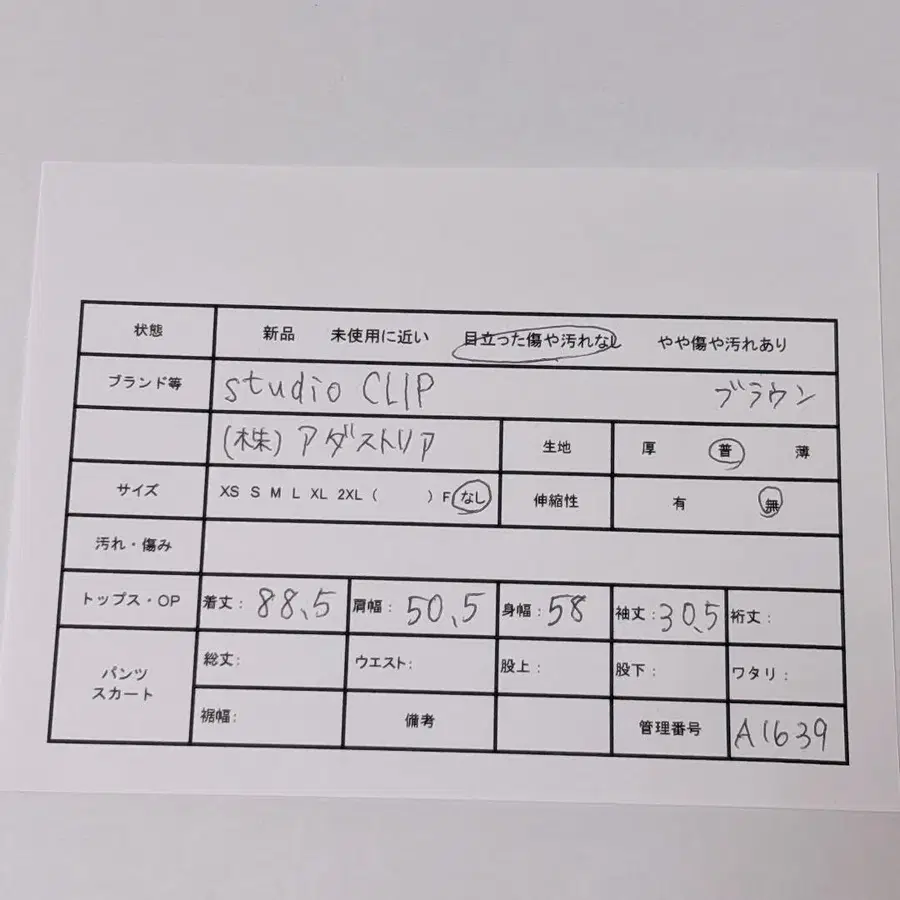 状態 新品 未使用に近い 目立った傷や汚れなし やや傷や汚れあり
ブランド等 studio CLIP ブラウン
(株)アダストリア 生地 厚 普 薄
サイズ XS S M L XL 2XL ( ) F なし 伸縮性 有 無
汚れ・傷み
トップス・OP 着丈: 88.5 肩幅: 50.5 身幅: 58 袖丈: 30.5 裄丈:
パンツ スカート 総丈: ウエスト: 股上: 股下: ワタリ:
裾幅: 備考 管理番号 A1639